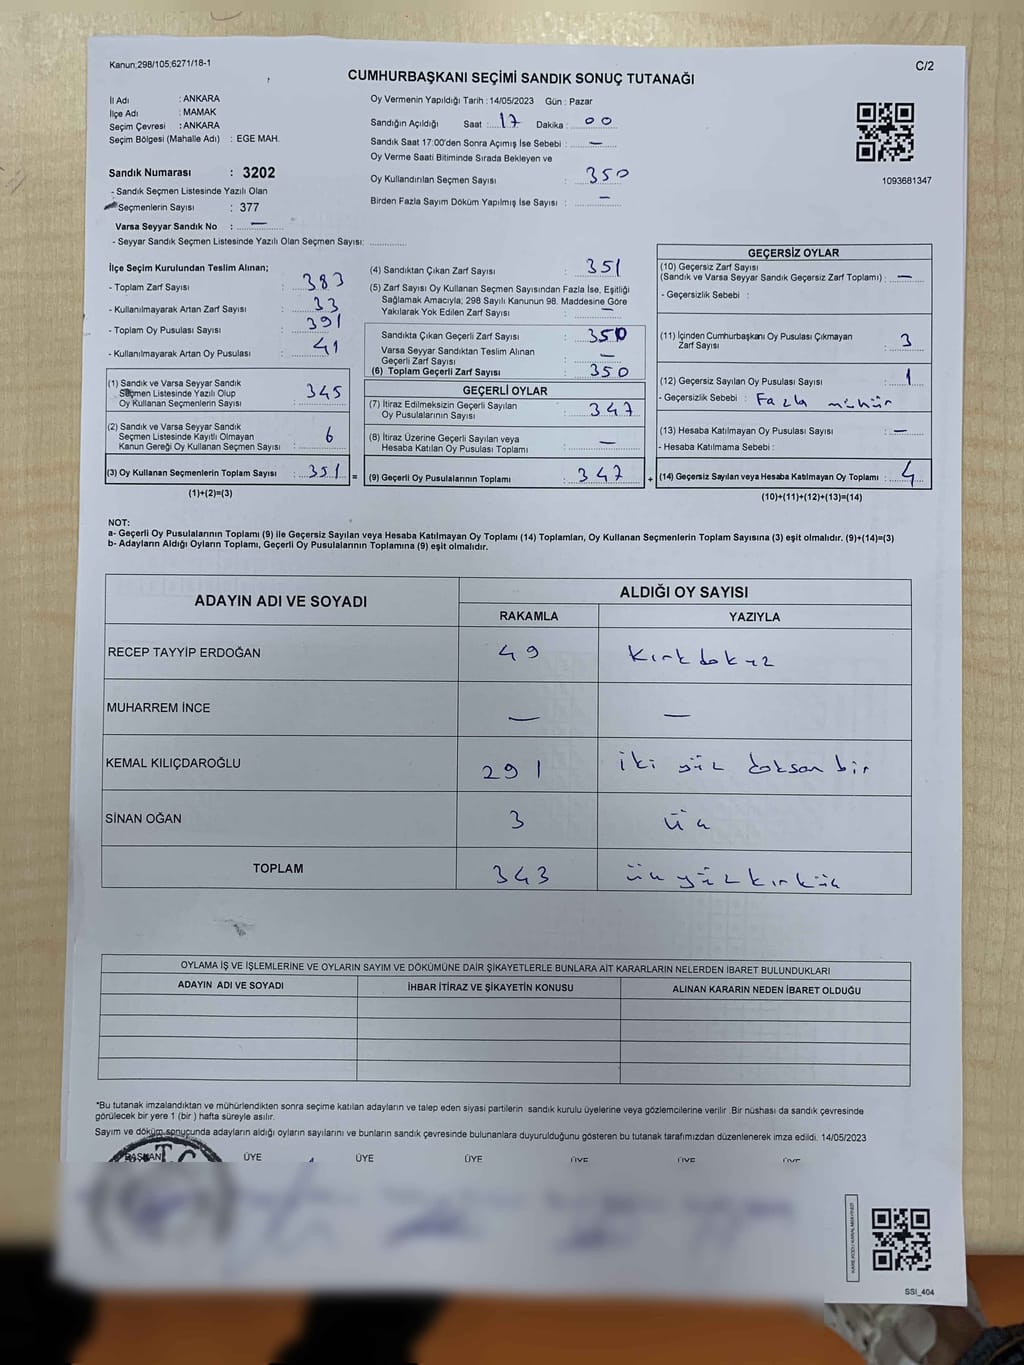 Kanun;298/105;6271/18-1
C/2
CUMHURBAŞKANI SEÇİMİ SANDIK SONUÇ TUTANAĞI
İl Adı : ANKARA
İlçe Adı : MAMAK
Seçim Çevresi : ANKARA
Seçim Bölgesi (Mahalle Adı) : EGE MAH.
Sandık Numarası : 3202
- Sandık Seçmen Listesinde Yazılı Olan
Seçmenlerin Sayısı : 377
Varsa Seyyar Sandık No : —
- Seyyar Sandık Seçmen Listesinde Yazılı Olan Seçmen Sayısı: ............
Oy Vermenin Yapıldığı Tarih : 14/05/2023 Gün : Pazar
Sandığın Açıldığı Saat : 17 Dakika : 00
Sandık Saat 17:00'den Sonra Açımış İse Sebebi : —
Oy Verme Saati Bitiminde Sırada Bekleyen ve
Oy Kullandırılan Seçmen Sayısı : 350
Birden Fazla Sayım Döküm Yapılmış İse Sayısı : —
1093681347
İlçe Seçim Kurulundan Teslim Alınan;
- Toplam Zarf Sayısı : 383
- Kullanılmayarak Artan Zarf Sayısı : 33
- Toplam Oy Pusulası Sayısı : 391
- Kullanılmayarak Artan Oy Pusulası : 41
(1) Sandık ve Varsa Seyyar Sandık
Seçmen Listesinde Yazılı Olup
Oy Kullanan Seçmenlerin Sayısı : 345
(2) Sandık ve Varsa Seyyar Sandık
Seçmen Listesinde Kayıtlı Olmayan
Kanun Gereği Oy Kullanan Seçmen Sayısı : 6
(3) Oy Kullanan Seçmenlerin Toplam Sayısı : 351
(1)+(2)=(3)
=
(4) Sandıktan Çıkan Zarf Sayısı : 351
(5) Zarf Sayısı Oy Kullanan Seçmen Sayısından Fazla İse, Eşitliği
Sağlamak Amacıyla, 298 Sayılı Kanunun 98. Maddesine Göre
Yakılarak Yok Edilen Zarf Sayısı : —
Sandıkta Çıkan Geçerli Zarf Sayısı : 350
Varsa Seyyar Sandıktan Teslim Alınan
Geçerli Zarf Sayısı : —
(6) Toplam Geçerli Zarf Sayısı : 350
GEÇERLİ OYLAR
(7) İtiraz Edilmeksizin Geçerli Sayılan
Oy Pusulalarının Sayısı : 347
(8) İtiraz Üzerine Geçerli Sayılan veya
Hesaba Katılan Oy Pusulası Toplamı : —
(9) Geçerli Oy Pusulalarının Toplamı : 347
+
GEÇERSİZ OYLAR
(10) Geçersiz Zarf Sayısı
(Sandık ve Varsa Seyyar Sandık Geçersiz Zarf Toplamı) : —
- Geçersizlik Sebebi :
(11) İçinden Cumhurbaşkanı Oy Pusulası Çıkmayan
Zarf Sayısı : 3
(12) Geçersiz Sayılan Oy Pusulası Sayısı : 1
- Geçersizlik Sebebi : Fazla mühür
(13) Hesaba Katılmayan Oy Pusulası Sayısı : —
- Hesaba Katılmama Sebebi :
(14) Geçersiz Sayılan veya Hesaba Katılmayan Oy Toplamı : 4
(10)+(11)+(12)+(13)=(14)
NOT:
a- Geçerli Oy Pusulalarının Toplamı (9) ile Geçersiz Sayılan veya Hesaba Katılmayan Oy Toplamı (14) Toplamları, Oy Kullanan Seçmenlerin Toplam Sayısına (3) eşit olmalıdır. (9)+(14)=(3)
b- Adayların Aldığı Oyların Toplamı, Geçerli Oy Pusulalarının Toplamına (9) eşit olmalıdır.
ADAYIN ADI VE SOYADI
ALDIĞI OY SAYISI
RAKAMLA YAZIYLA
RECEP TAYYİP ERDOĞAN 49 kırkdokuz
MUHARREM İNCE — —
KEMAL KILIÇDAROĞLU 291 iki yüz doksan bir
SİNAN OĞAN 3 üç
TOPLAM 343 üç yüz kırküç
OYLAMA İŞ VE İŞLEMLERİNE VE OYLARIN SAYIM VE DÖKÜMÜNE DAİR ŞİKAYETLERLE BUNLARA AİT KARARLARIN NELERDEN İBARET BULUNDUKLARI
ADAYIN ADI VE SOYADI İHBAR İTİRAZ VE ŞİKAYETİN KONUSU ALINAN KARARIN NEDEN İBARET OLDUĞU
*Bu tutanak imzalandıktan ve mühürlendikten sonra seçime katılan adayların ve talep eden siyasi partilerin sandık kurulu üyelerine veya gözlemcilerine verilir .Bir nüshası da sandık çevresinde
görülecek bir yere 1 (bir ) hafta süreyle asılır.
Sayım ve döküm sonucunda adayların aldığı oyların sayılarını ve bunların sandık çevresinde bulunanlara duyurulduğunu gösteren bu tutanak tarafımızdan düzenlenerek imza edildi. 14/05/2023
BAŞKAN ÜYE ÜYE ÜYE ÜYE ÜYE ÜYE
SSI_404